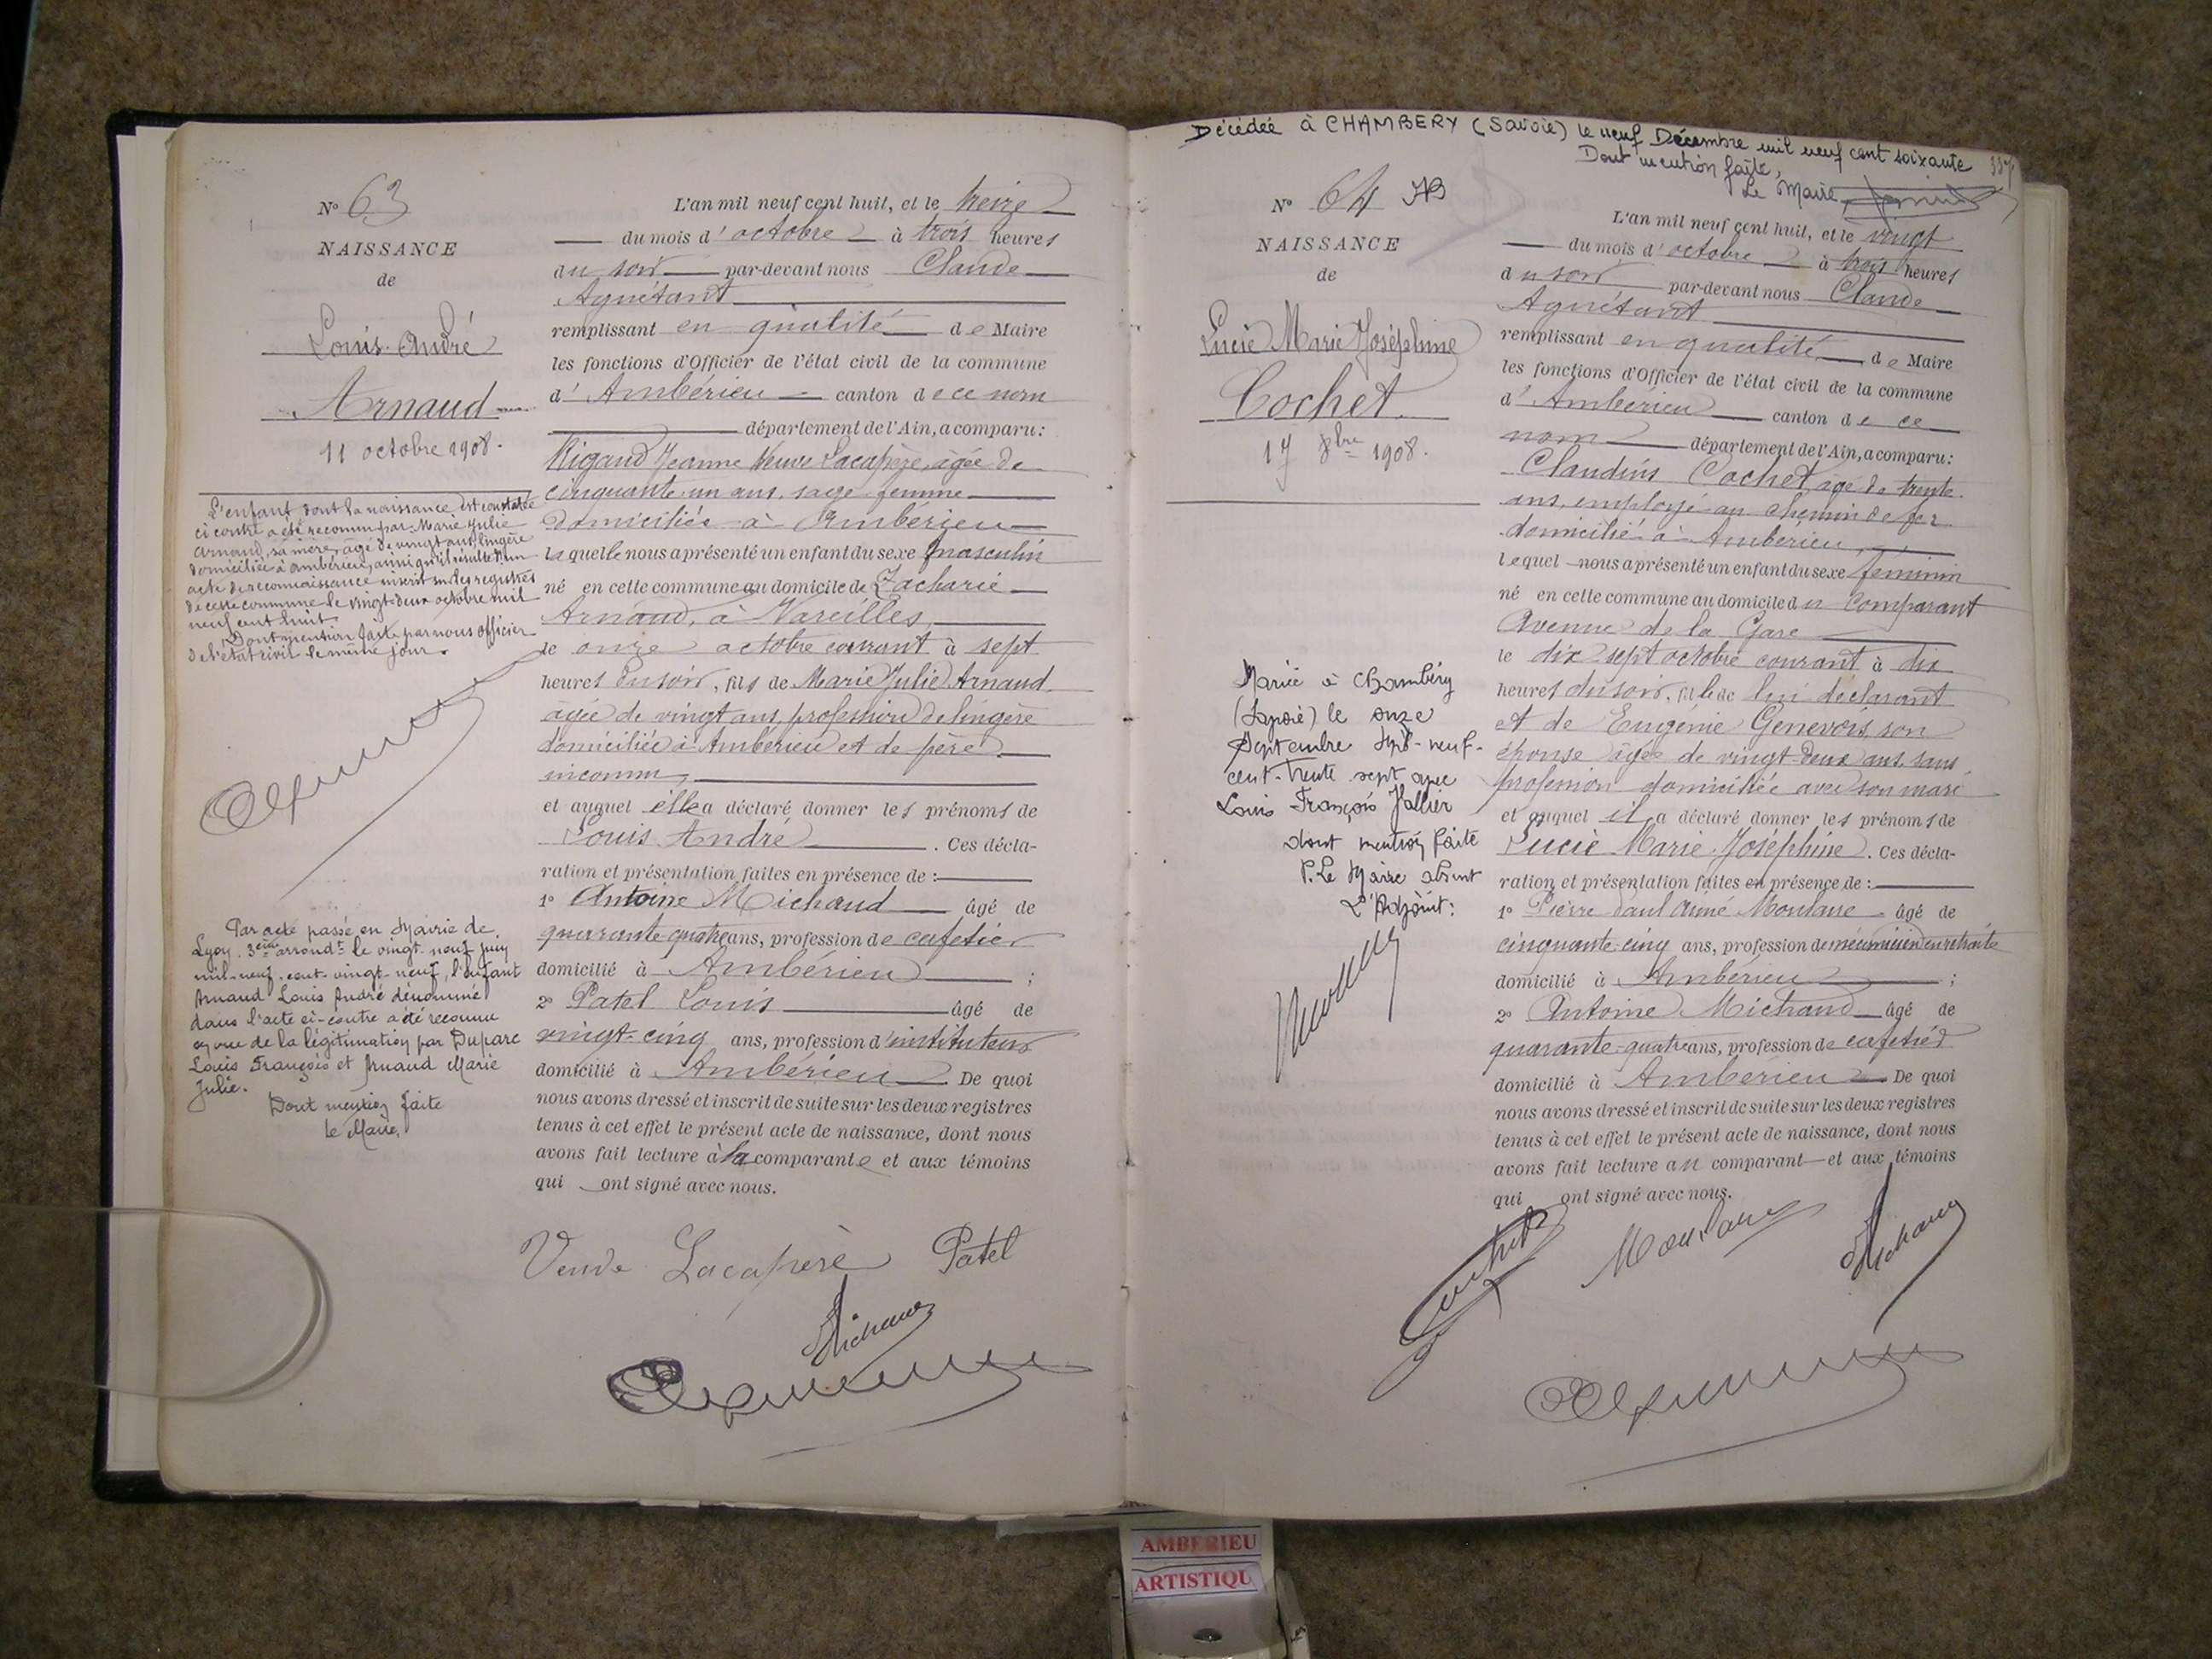 Nº 63
NAISSANCE
de
Louis André
Arnaud
11 octobre 1908.
L'enfant dont la naissance est constatée
ci contre a été reconnu par Marie Julie
Arnaud, sa mère, âgé de vingt ans, lingère
domiciliée à Ambérieu, ainsi qu'il résulte d'un
acte de reconnaissance inscrit sur les registres
de cette commune le vingt-deux octobre mil
neuf cent huit
Dont mention faite par nous officier
de l'état civil le même jour.
Par acte passé en Mairie de
Lyon 3ème arrondt le vingt-neuf juin
mil-neuf-cent-vingt-neuf, l'enfant
Arnaud Louis André dénommé
dans l'acte ci-contre a été reconnu
en vue de la légitimation par Duparc
Louis François et Arnaud Marie
Julie.
Dont mention faite
le Maire,
L'an mil neuf cent huit, et le treize
du mois d'octobre à trois heures
du soir par-devant nous Claude
Agnétant
remplissant en qualité de Maire
les fonctions d'Officier de l'état civil de la commune
d'Ambérieu canton de ce nom
département de l'Ain, a comparu:
Rigaud Jeanne Veuve Lacapère, âgée de
cinquante un ans, sage femme
domiciliée à Ambérieu
laquelle nous a présenté un enfant du sexe masculin
né en cette commune au domicile de Zacharie
Arnaud, à Vareilles,
le onze octobre courant à sept
heures du soir, fils de Marie Julie Arnaud
âgée de vingt ans, profession de lingère
domiciliée à Ambérieu et de père
inconnu,
et auquel elle a déclaré donner les prénoms de
Louis André . Ces décla-
ration et présentation faites en présence de :
1º Antoine Michaud âgé de
quarante quatre ans, profession de cafetier
domicilié à Ambérieu ;
2º Patel Louis âgé de
vingt-cinq ans, profession d'instituteur
domicilié à Ambérieu De quoi
nous avons dressé et inscrit de suite sur les deux registres
tenus à cet effet le présent acte de naissance, dont nous
avons fait lecture à la comparante et aux témoins
qui ont signé avec nous.
Veuve Lacapère Patel
Michaud
Décédée à CHAMBERY (Savoie) le neuf Décembre mil neuf cent soixante
Dont mention faite,
Le Maire
337
Nº 64
NAISSANCE
de
Lucie Marie Joséphine
Cochet
17 8bre 1908.
Mariée à Chambéry
(Savoie) le onze
Septembre mil-neuf-
cent-trente sept avec
Louis François Vallier
dont mention faite
P. Le Maire absent
L'Adjoint:
L'an mil neuf cent huit, et le vingt
du mois d'octobre à trois heures
du soir par-devant nous Claude
Agnétant
remplissant en qualité de Maire
les fonctions d'Officier de l'état civil de la commune
d'Ambérieu canton de ce
nom département de l'Ain, a comparu:
Claudius Cochet, âgé de trente
ans, employé au chemin de fer
domicilié à Ambérieu,
lequel nous a présenté un enfant du sexe féminin
né en cette commune au domicile du comparant
Avenue de la Gare
le dix sept octobre courant à dix
heures du soir, fille de lui déclarant
et de Eugénie Genevois, son
épouse âgée de vingt-deux ans, sans
profession domiciliée avec son mari
et auquel il a déclaré donner les prénoms de
Lucie Marie Joséphine. Ces décla-
ration et présentation faites en présence de :
1º Pierre Paul Aimé âgé de
cinquante-cinq ans, profession de mécanicien en retraite
domicilié à Ambérieu ;
2º Antoine Michaud âgé de
quarante-quatre ans, profession de cafetier
domicilié à Ambérieu De quoi
nous avons dressé et inscrit de suite sur les deux registres
tenus à cet effet le présent acte de naissance, dont nous
avons fait lecture au comparant et aux témoins
qui ont signé avec nous.
Michaud
AMBERIEU
ARTISTIQU